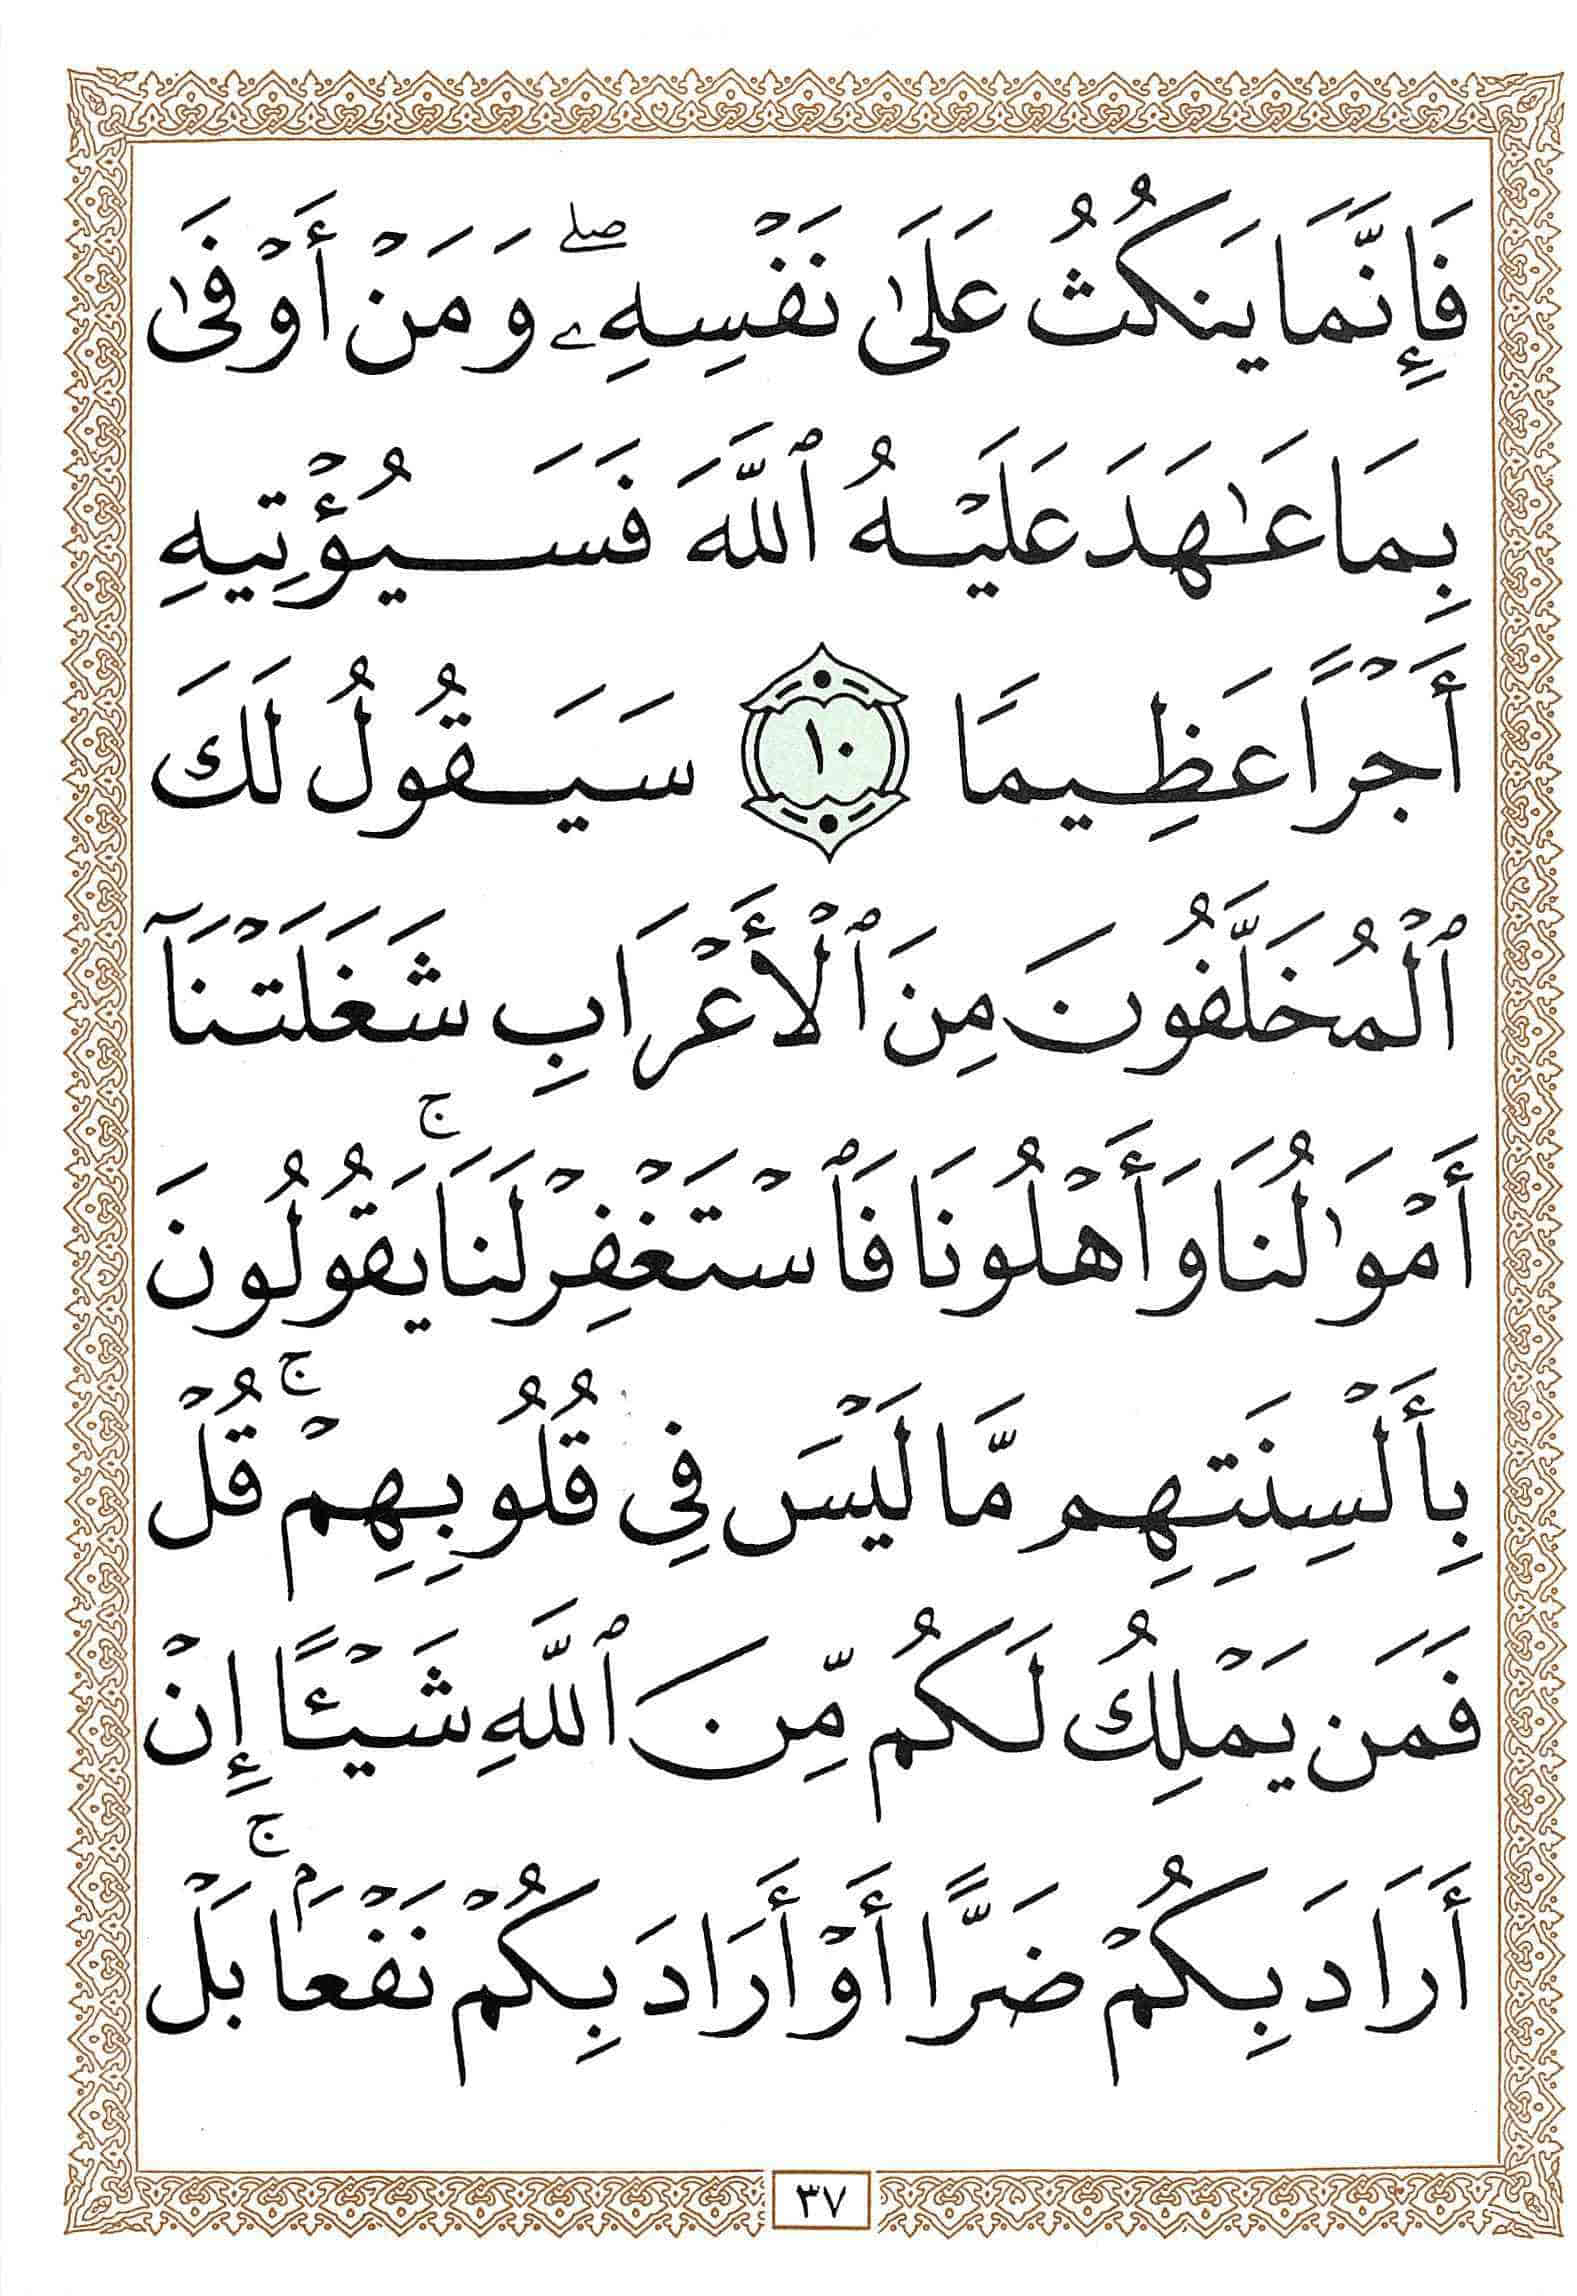 فَإِنَّمَا يَنكُثُ عَلَىٰ نَفْسِهِۦ ۖ وَمَنْ أَوْفَىٰ
بِمَا عَـٰهَدَ عَلَيْهُ ٱللَّهَ فَسَيُؤْتِيهِ
أَجْرًا عَظِيمًا ١٠ سَيَقُولُ لَكَ
ٱلْمُخَلَّفُونَ مِنَ ٱلْأَعْرَابِ شَغَلَتْنَآ
أَمْوَٰلُنَا وَأَهْلُونَا فَٱسْتَغْفِرْ لَنَا ۚ يَقُولُونَ
بِأَلْسِنَتِهِم مَّا لَيْسَ فِى قُلُوبِهِمْ ۚ قُلْ
فَمَن يَمْلِكُ لَكُم مِّنَ ٱللَّهِ شَيْـًٔا إِنْ
أَرَادَ بِكُمْ ضَرًّا أَوْ أَرَادَ بِكُمْ نَفْعَۢا ۚ بَلْ
٣٧